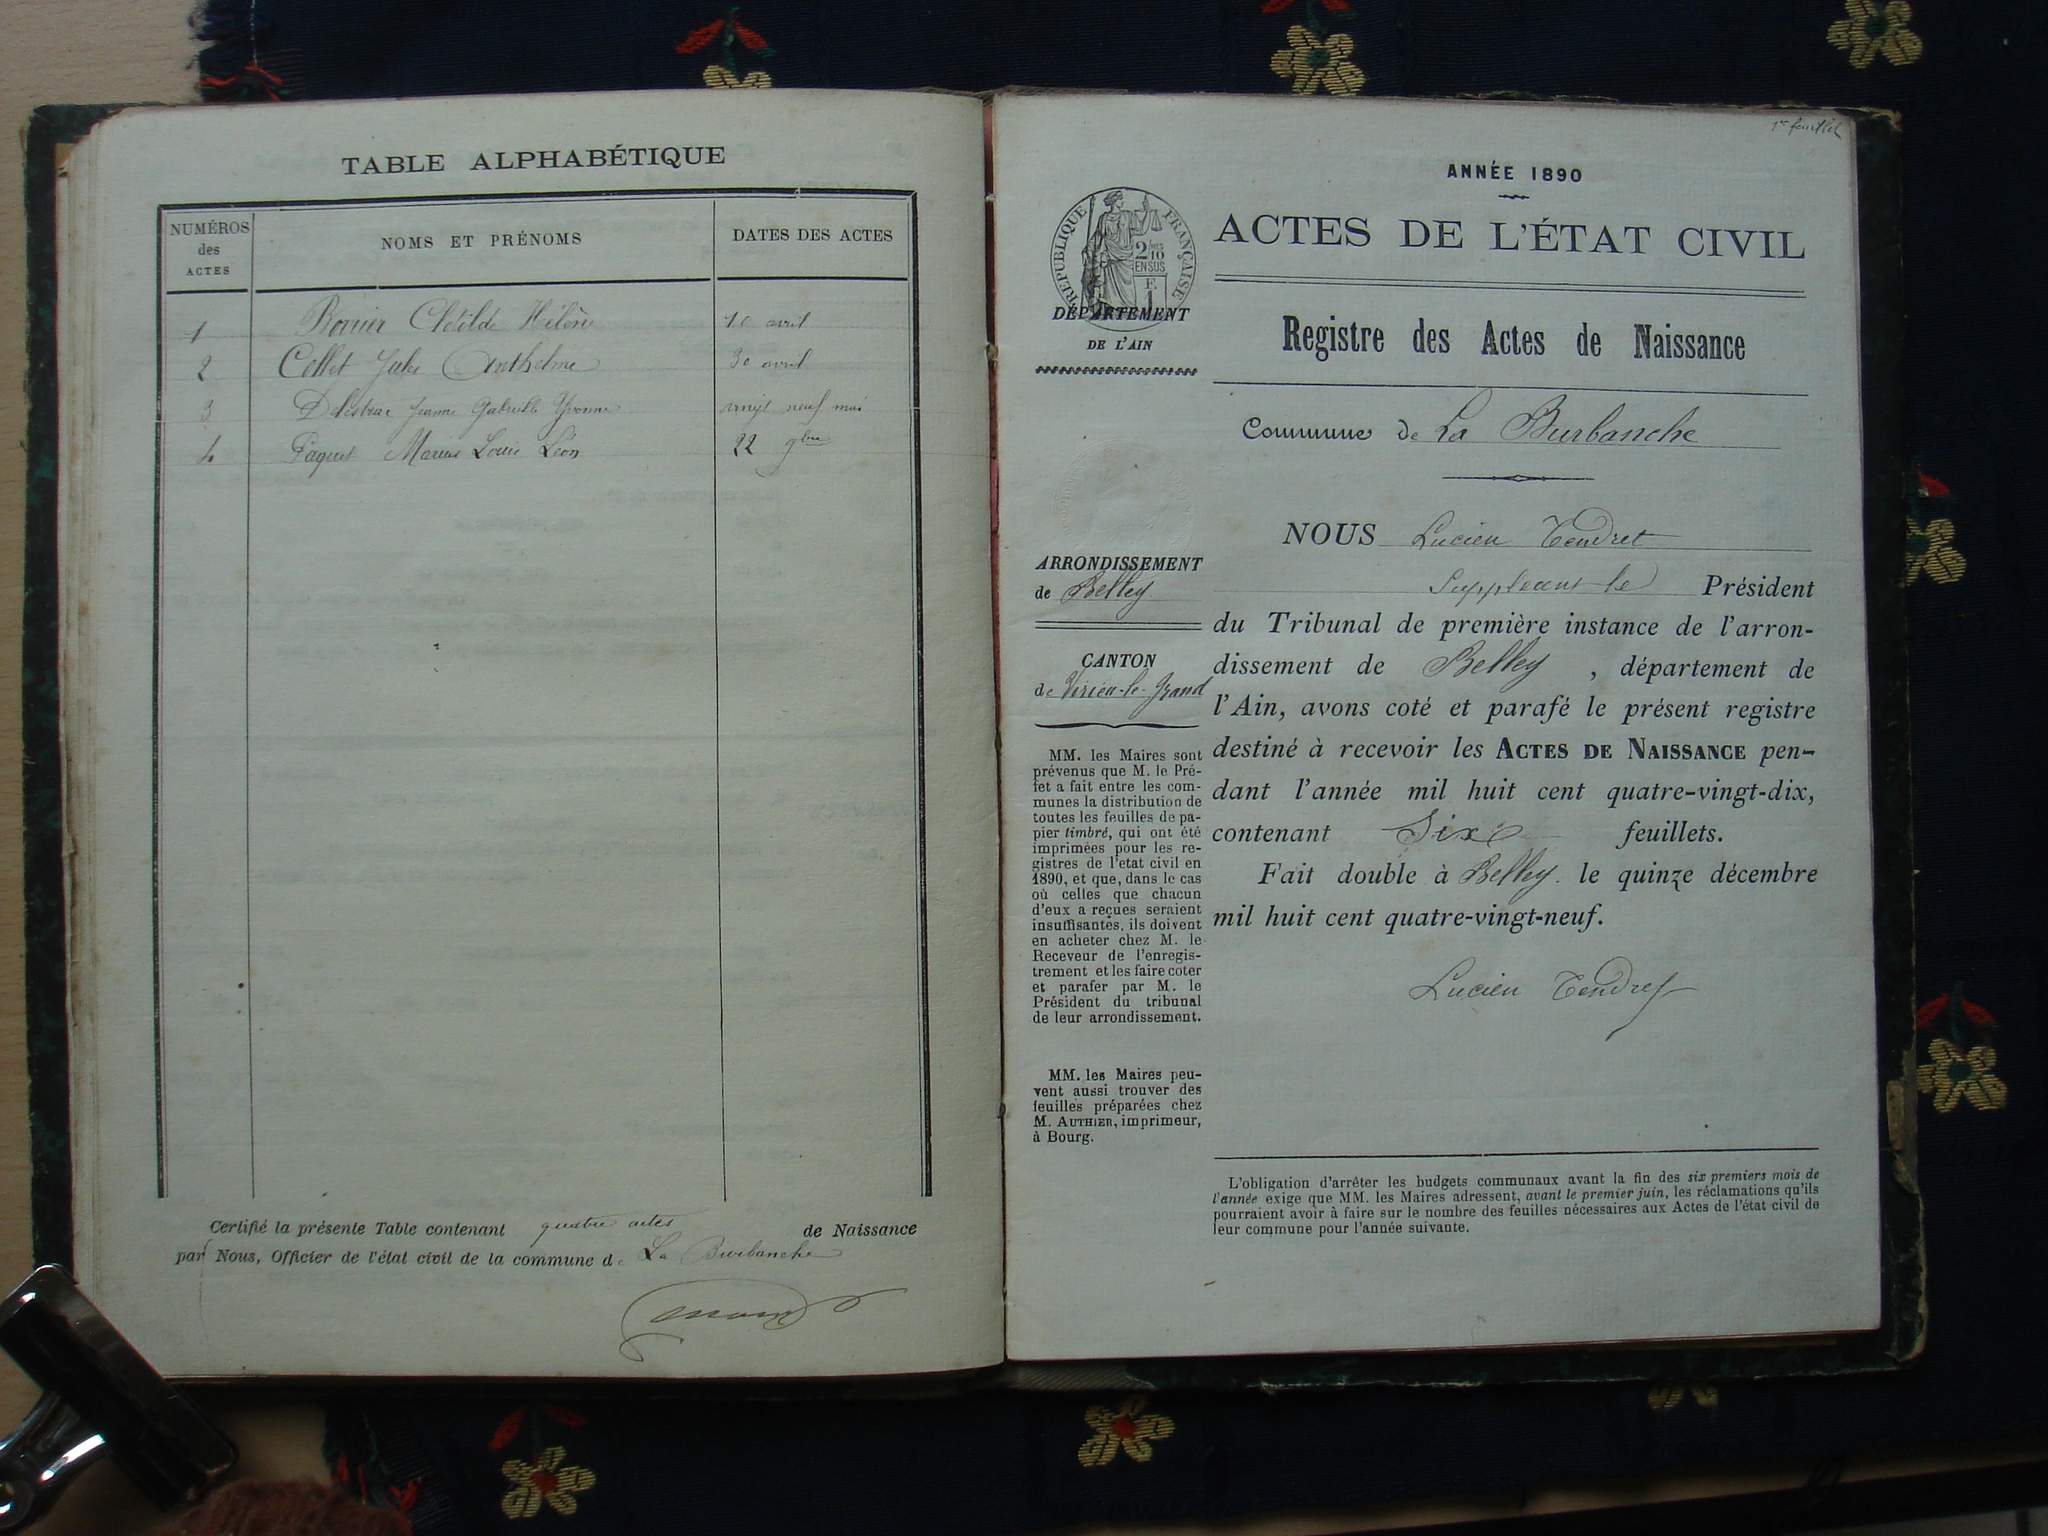 TABLE ALPHABÉTIQUE
NUMÉROS
des
ACTES
NOMS ET PRÉNOMS
DATES DES ACTES
1 Clotilde Hélène 10 avril
2 Collet Jules Anthelme 30 avril
3 Jeanne Gabrielle Yvonne vingt neuf mai
4 Paquet Marius Louis Léon 22 9bre
Certifié la présente Table contenant quatre actes de Naissance
par Nous, Officier de l'état civil de la commune de La Burbanche
1er feuillet
ANNÉE 1890
ACTES DE L'ÉTAT CIVIL
Registre des Actes de Naissance
Commune de La Burbanche
NOUS Lucien Tendret
Suppléant le Président
du Tribunal de première instance de l'arron-
dissement de Belley, département de
l'Ain, avons coté et parafé le présent registre
destiné à recevoir les ACTES DE NAISSANCE pen-
dant l'année mil huit cent quatre-vingt-dix,
contenant Six feuillets.
Fait double à Belley. le quinze décembre
mil huit cent quatre-vingt-neuf.
Lucien Tendret
RÉPUBLIQUE FRANÇAISE
2/10
EN SUS
F
1
DÉPARTEMENT
DE L'AIN
ARRONDISSEMENT
de Belley
CANTON
de Virieu-le-Grand
MM. les Maires sont
prévenus que M. le Pré-
fet a fait entre les com-
munes la distribution de
toutes les feuilles de pa-
pier timbré, qui ont été
imprimées pour les re-
gistres de l'etat civil en
1890, et que, dans le cas
où celles que chacun
d'eux a reçues seraient
insuffisantes, ils doivent
en acheter chez M. le
Receveur de l'enregis-
trement et les faire coter
et parafer par M. le
Président du tribunal
de leur arrondissement.
MM. les Maires peu-
vent aussi trouver des
feuilles préparées chez
M. AUTHIER, imprimeur,
à Bourg.
L'obligation d'arrêter les budgets communaux avant la fin des six premiers mois de
l'année exige que MM. les Maires adressent, avant le premier juin, les réclamations qu'ils
pourraient avoir à faire sur le nombre des feuilles nécessaires aux Actes de l'état civil de
leur commune pour l'année suivante.